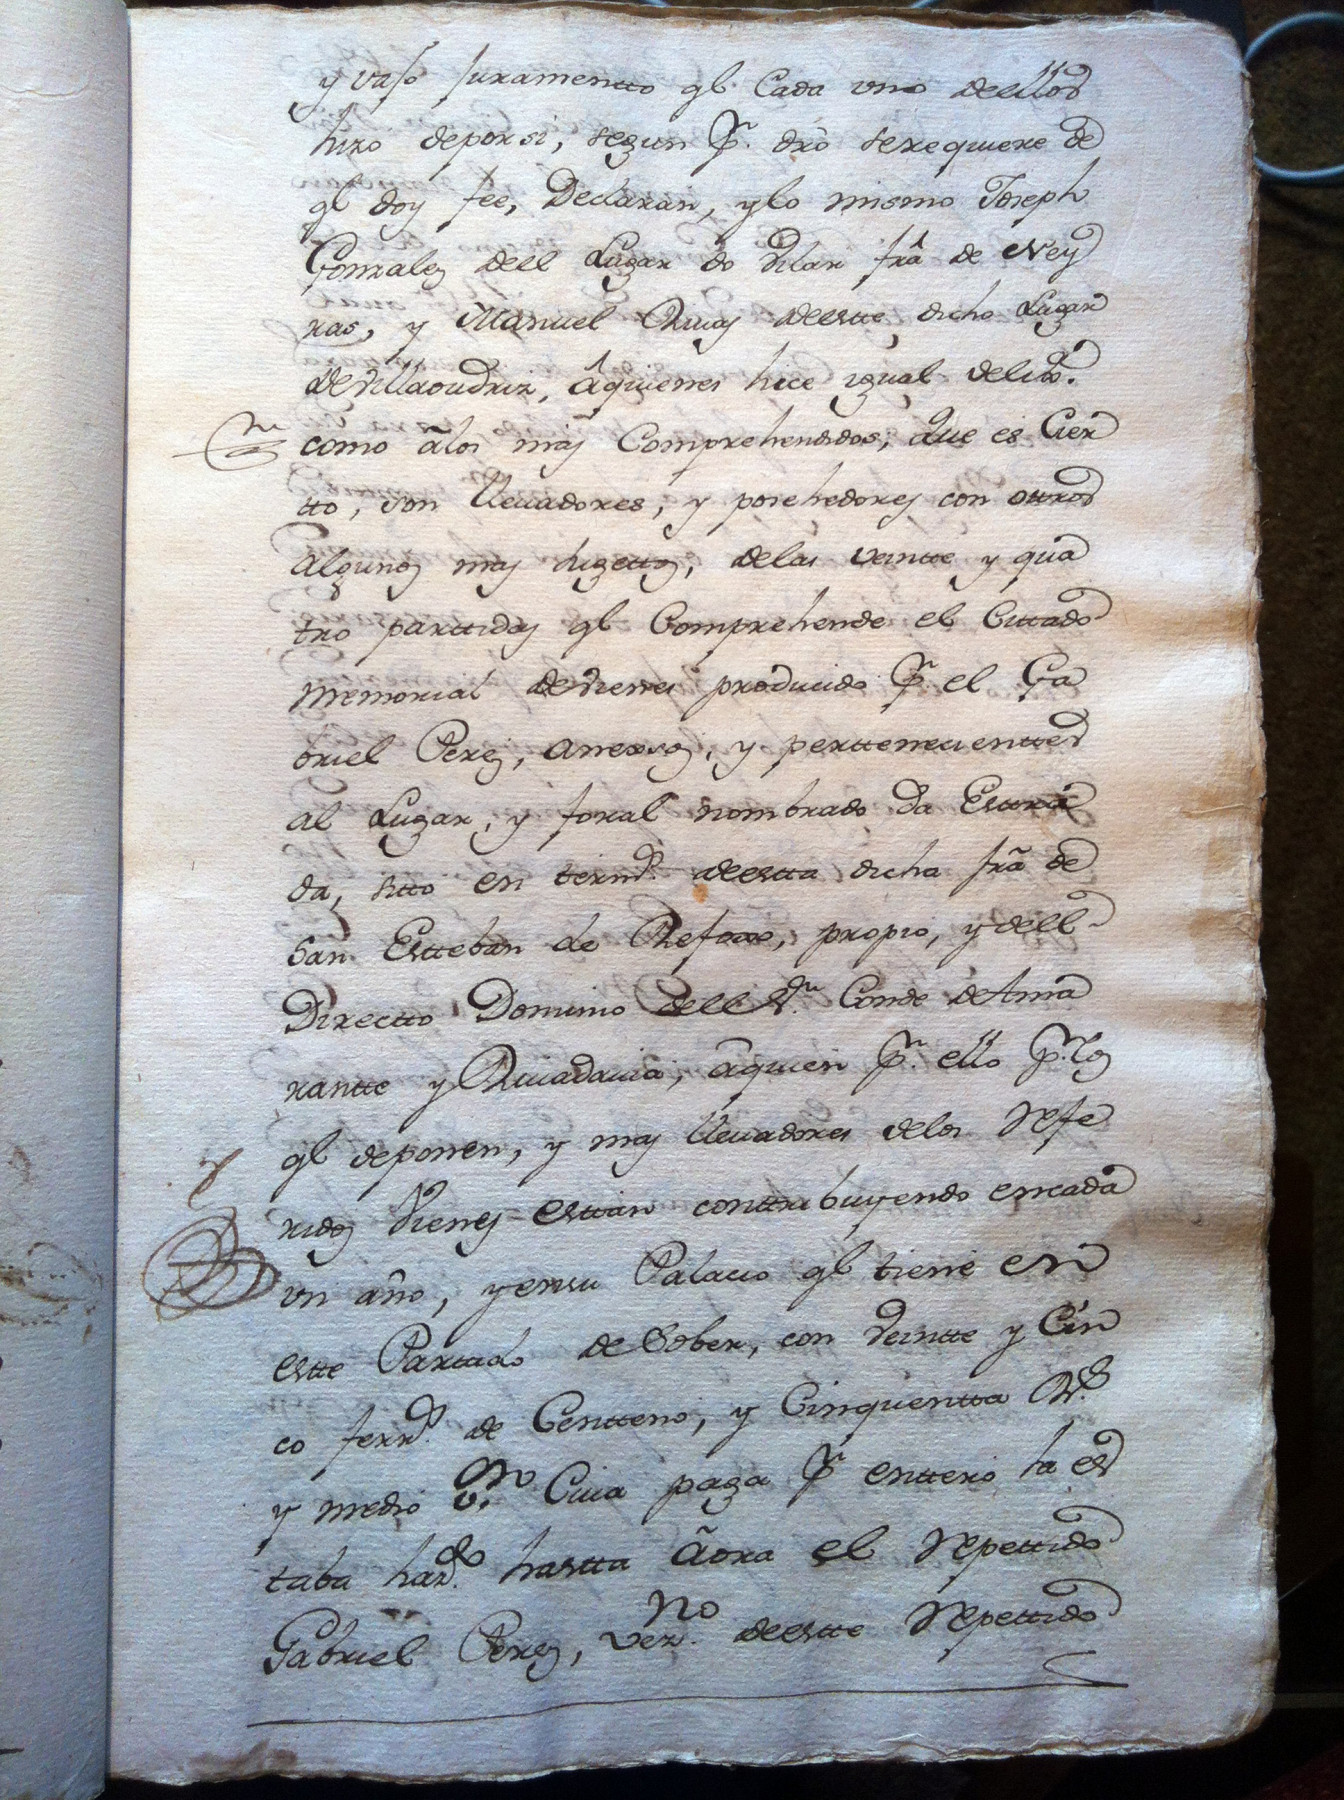 y vajo Juramentto ql. Cada uno dellos
hizo deporsi, segun Pr. dro serequiere de
ql doy fee, Declaran, ylo mismo Joseph
Gonzalez dell Lugar do Vilar frâ de Ney
ras, y Manuel Rivas deestte dicho Lugar
deVillaoudriz, âquienes hice igual
como âlos mas Comprehendidos, Que es Cier
tto, son llevadores, y posehedores con ottros
Algunos mas, delas veintte y qua
tro parttidas ql Comprehende el Cittado
Memorial deVienes producido Pr. el Ga
briel Perez, anexsos, y perttenecienttes
al Lugar, y foral nombrado da Esttra
da, sitto en termos. deestta dicha frâ de
San Estteban de Refoxo, propio, y dell
Directto Dominio dell Sr. Conde deAma
rantte y Rivadavia, âquien Pr. ello Pr. los
ql deponen, y mas llevadores delos Refe
ridos Vienes esttan conttribuyendo encada
un año, yensu Palacio ql tiene en
estte Parttido de Sober, con Veintte y Cin
co ferrs. de Centteno, y Cinquentta Rs.
y medio Vno. Cuia paga Pr enttero la es
taba hazdo. hastta âora el Repettido
Gabriel Perez, vezno. deestte Repettido